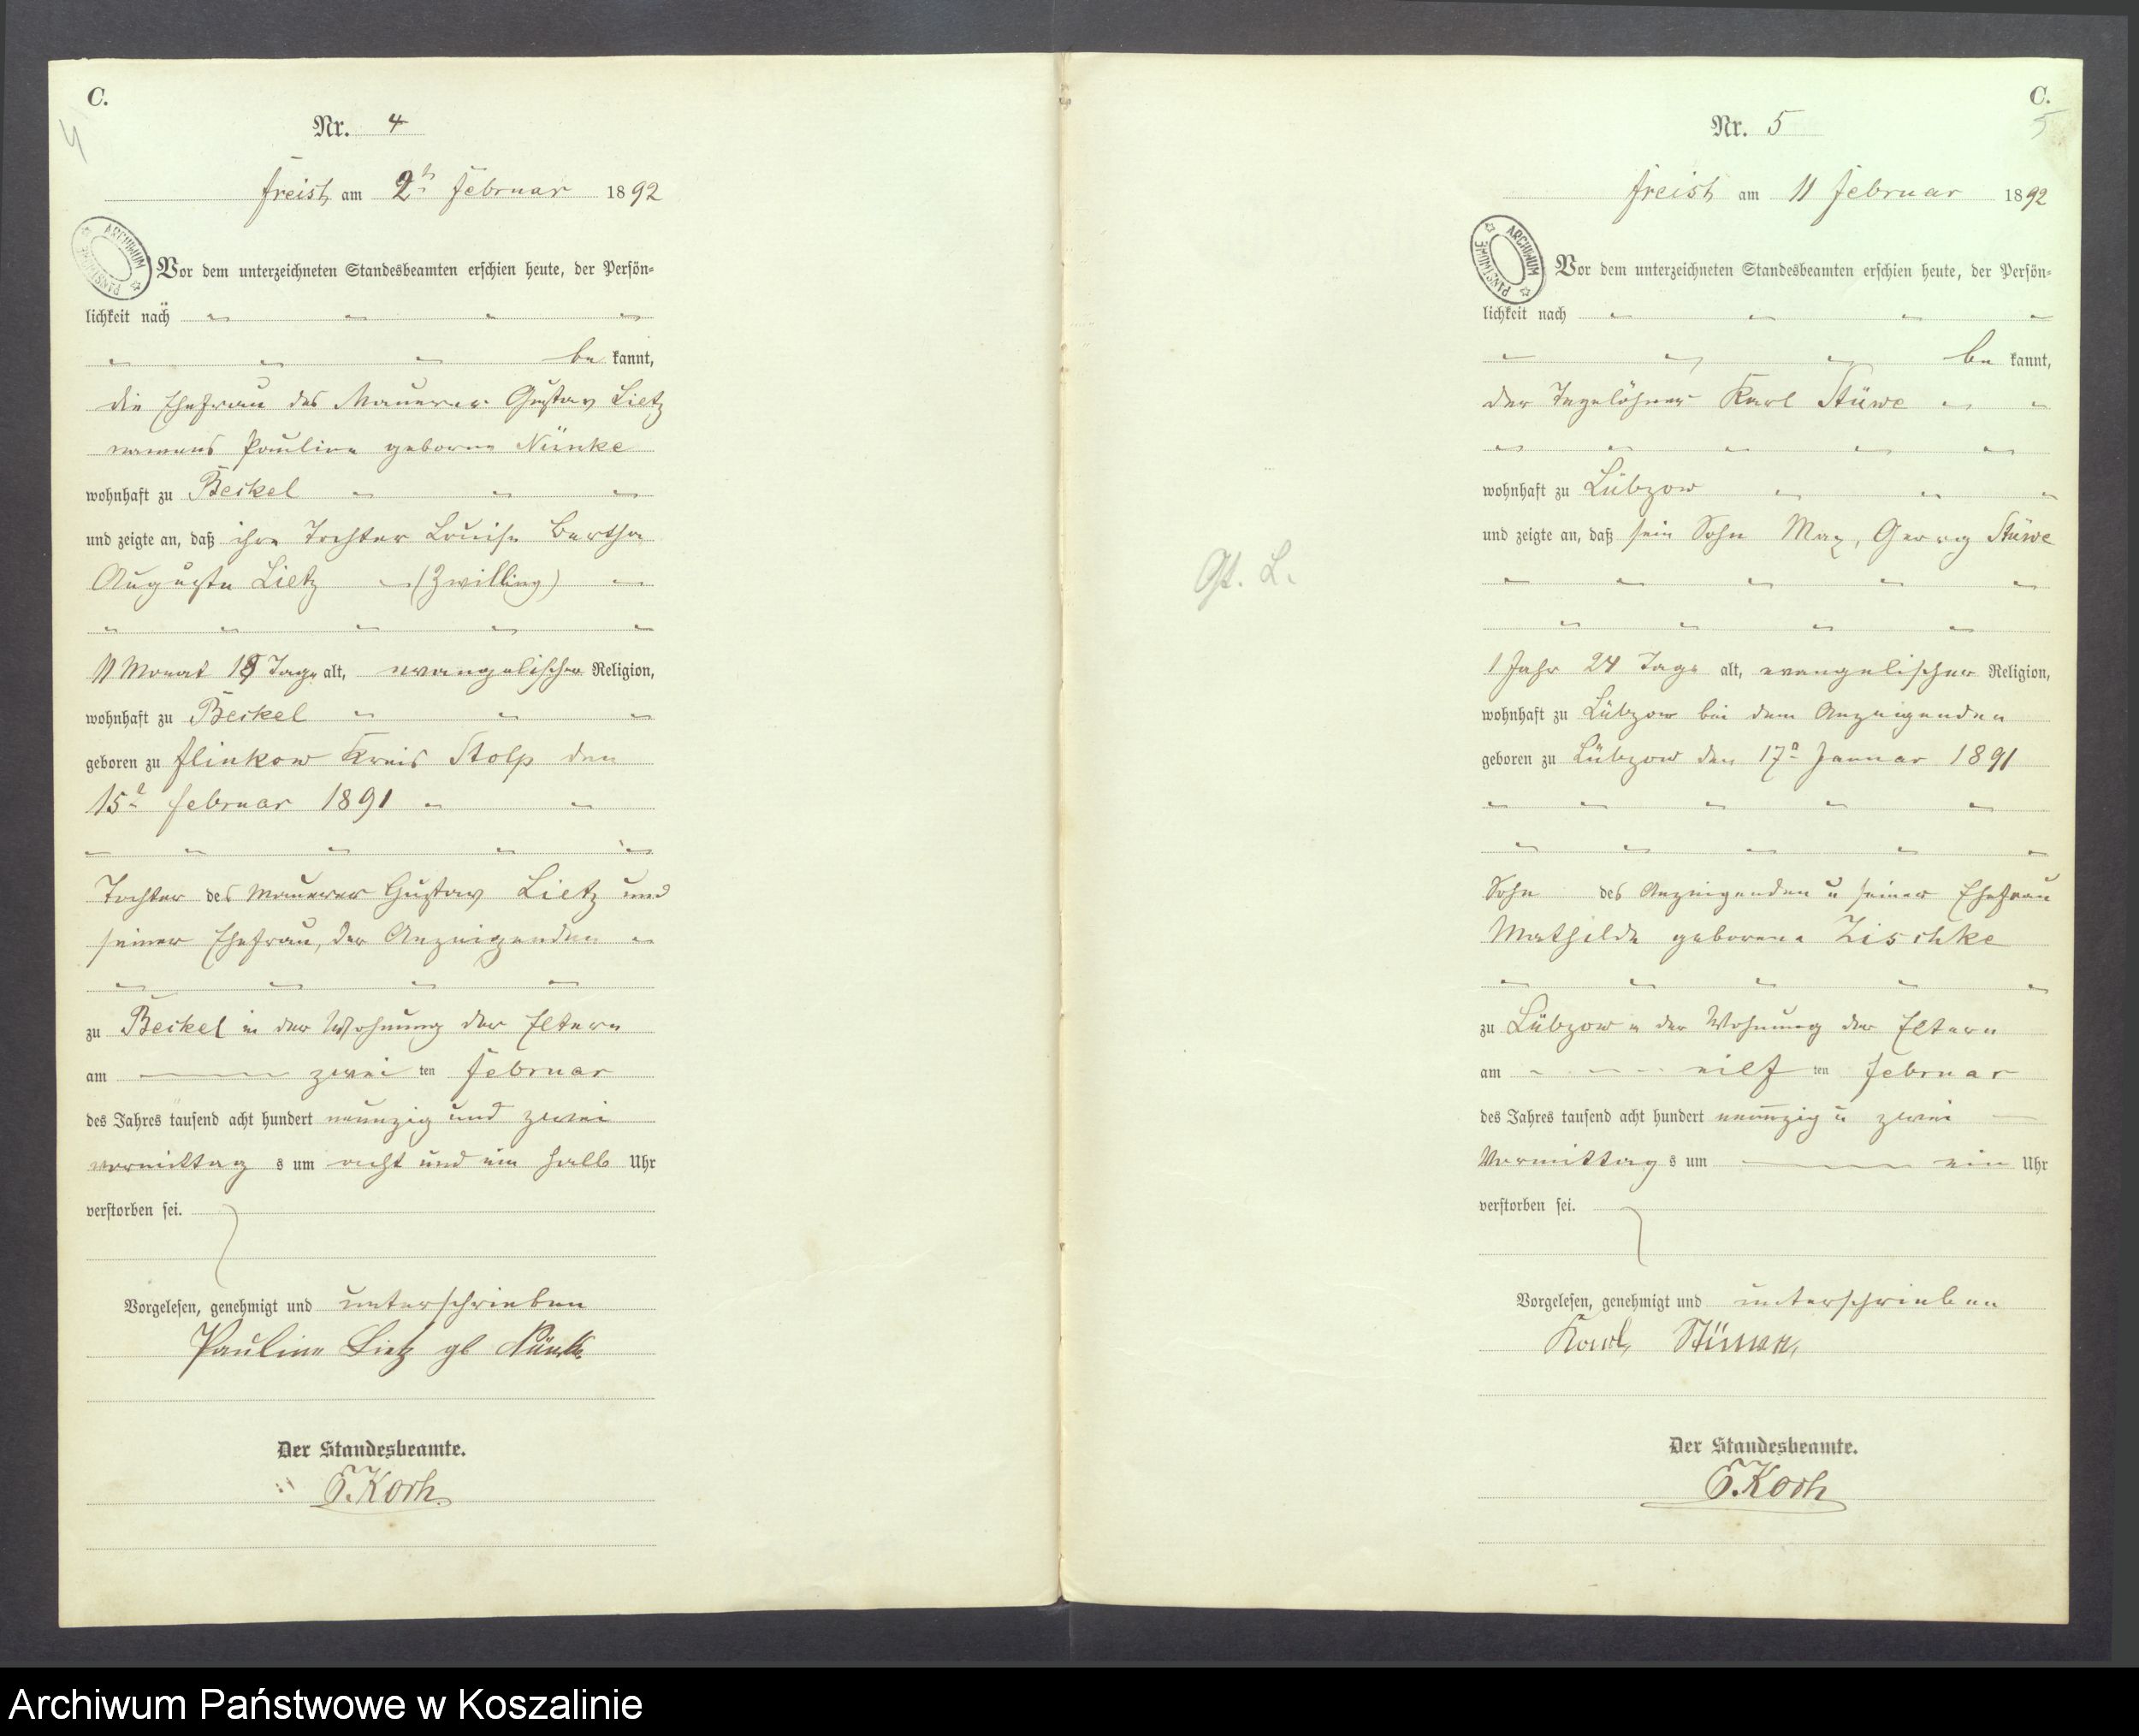 C.
4
Nr. 4
Freist am 2t Februar 1892
ARCHIWUM PAŃSTWOWE
Vor dem unterzeichneten Standesbeamten erschien heute, der Persön-
lichkeit nach
be kannt,
die Ehefrau des Maurer Gustav Lietz
namens Pauline geborne Nünke
wohnhaft zu Beckel
und zeigte an, daß ihre Tochter Louise Bertha
Auguste Lietz (Zwilling)
11 Monat 18 Tage alt, evangelischer Religion,
wohnhaft zu Beckel
geboren zu Flinkow Kreis Stolp den
15t Februar 1891
Tochter des Maurer Gustav Lietz und
seiner Ehefrau, der Anzeigenden
zu Beckel in der Wohnung der Eltern
am zwei ten Februar
des Jahres tausend acht hundert neunzig und zwei
vormittag s um acht und ein halb Uhr
verstorben sei.
Vorgelesen, genehmigt und unterschrieben
Pauline Lietz gb Nünke
Der Standesbeamte.
Koch
C.
5
Nr. 5
Freist am 11 Februar 1892
ARCHIWUM PAŃSTWOWE
Vor dem unterzeichneten Standesbeamten erschien heute, der Persön-
lichkeit nach
be kannt,
der Tagelöhner Karl Stüwe
wohnhaft zu Lübzow
und zeigte an, daß sein Sohn Max, Georg Stüwe
1 Jahr 24 Tage alt, evangelischer Religion,
wohnhaft zu Lübzow bei dem Anzeigenden
geboren zu Lübzow den 17n Januar 1891
Sohn des Anzeigenden u seiner Ehefrau
Mathilde geborene Zischke
zu Lübzow in der Wohnung der Eltern
am eilf ten Februar
des Jahres tausend acht hundert neunzig u zwei
Vormittag s um ein Uhr
verstorben sei.
Vorgelesen, genehmigt und unterschrieben
Karl Stüwe
Der Standesbeamte.
Koch
Archiwum Państwowe w Koszalinie